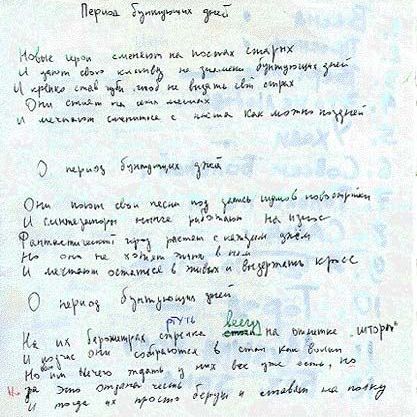 Период бунтующих дней
Новые герои сменяют на постах старых
И дают свою клятву на знамени бунтующих дней
И крепко сжав зубы чтоб не выдать свой страх
Они стоят на своих местах
И мечтают смениться с поста как можно поздней
О период бунтующих дней
Они поют свои песни под запись шумов новостройки
И синтезаторы нынче работают на износ
Фантастический град растет с каждым днём
Но они не хотят жить в нем
И мечтают остаться в живых и выдержать кросс
О период бунтующих дней
ртуть всегда
На их барометрах стрелка на отметке шторм
И поэтому они собираются в стаи как волки
Но им нечего ждать у них все уже есть, но
за это отдана честь
И тогда их просто берут и ставят на полку